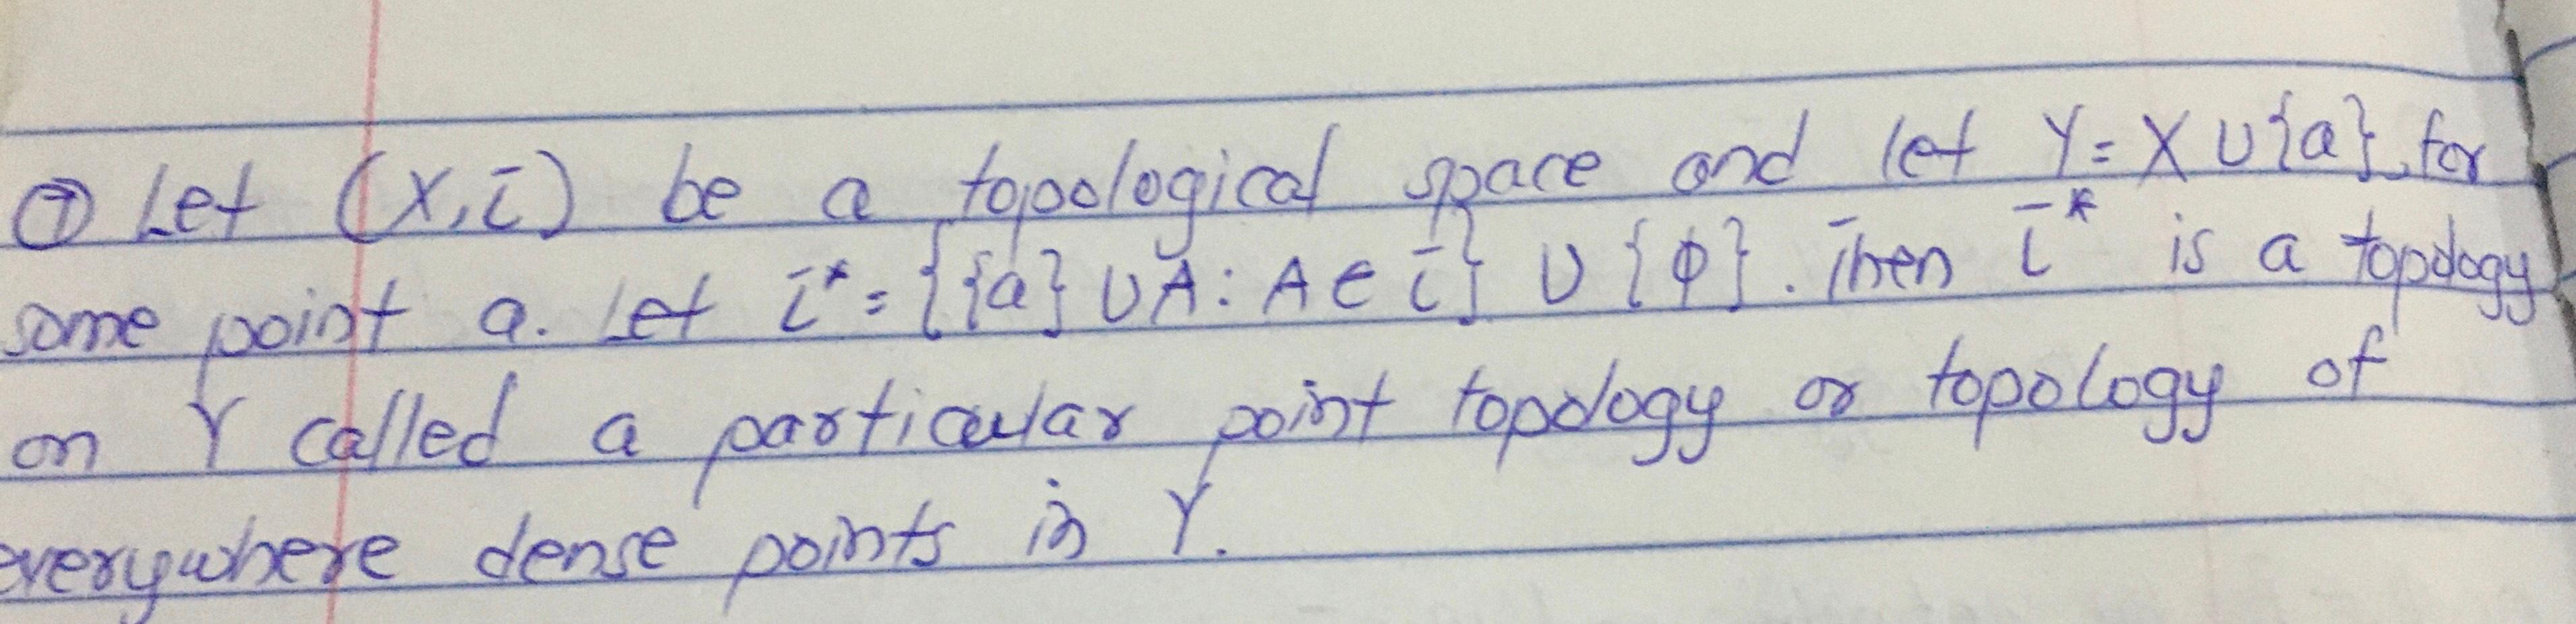 ⑦ Let (X, τ) be a topological space and let Y = X ∪ {a}, for
some point a. Let τ* = {{a} ∪ A : A ∈ τ} ∪ {ϕ}. Then τ* is a topology
on Y called a particular point topology or topology of
everywhere dense points in Y.